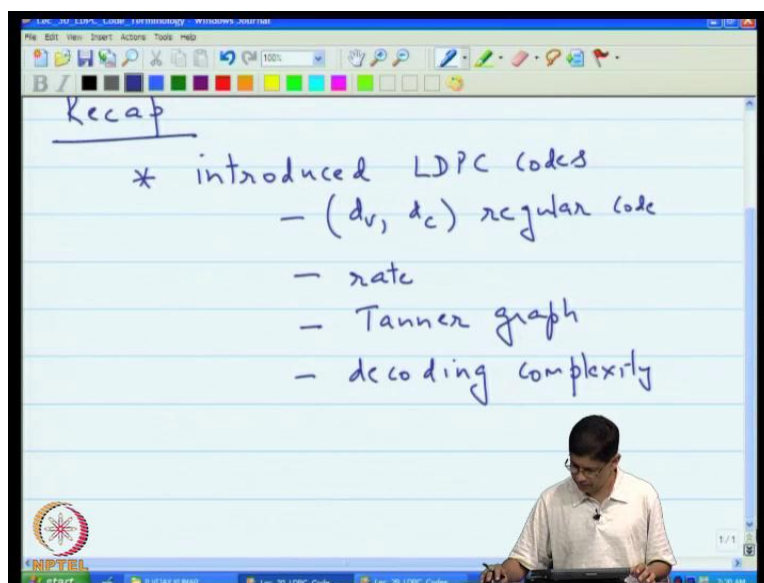 Lec_30_LDPC_Code_Terminology - Windows Journal
File Edit View Insert Actions Tools Help
100%
B I
Recap
* introduced LDPC codes
- (dv, dc) regular code
- rate
- Tanner graph
- decoding complexity
1/1
NPTEL
start